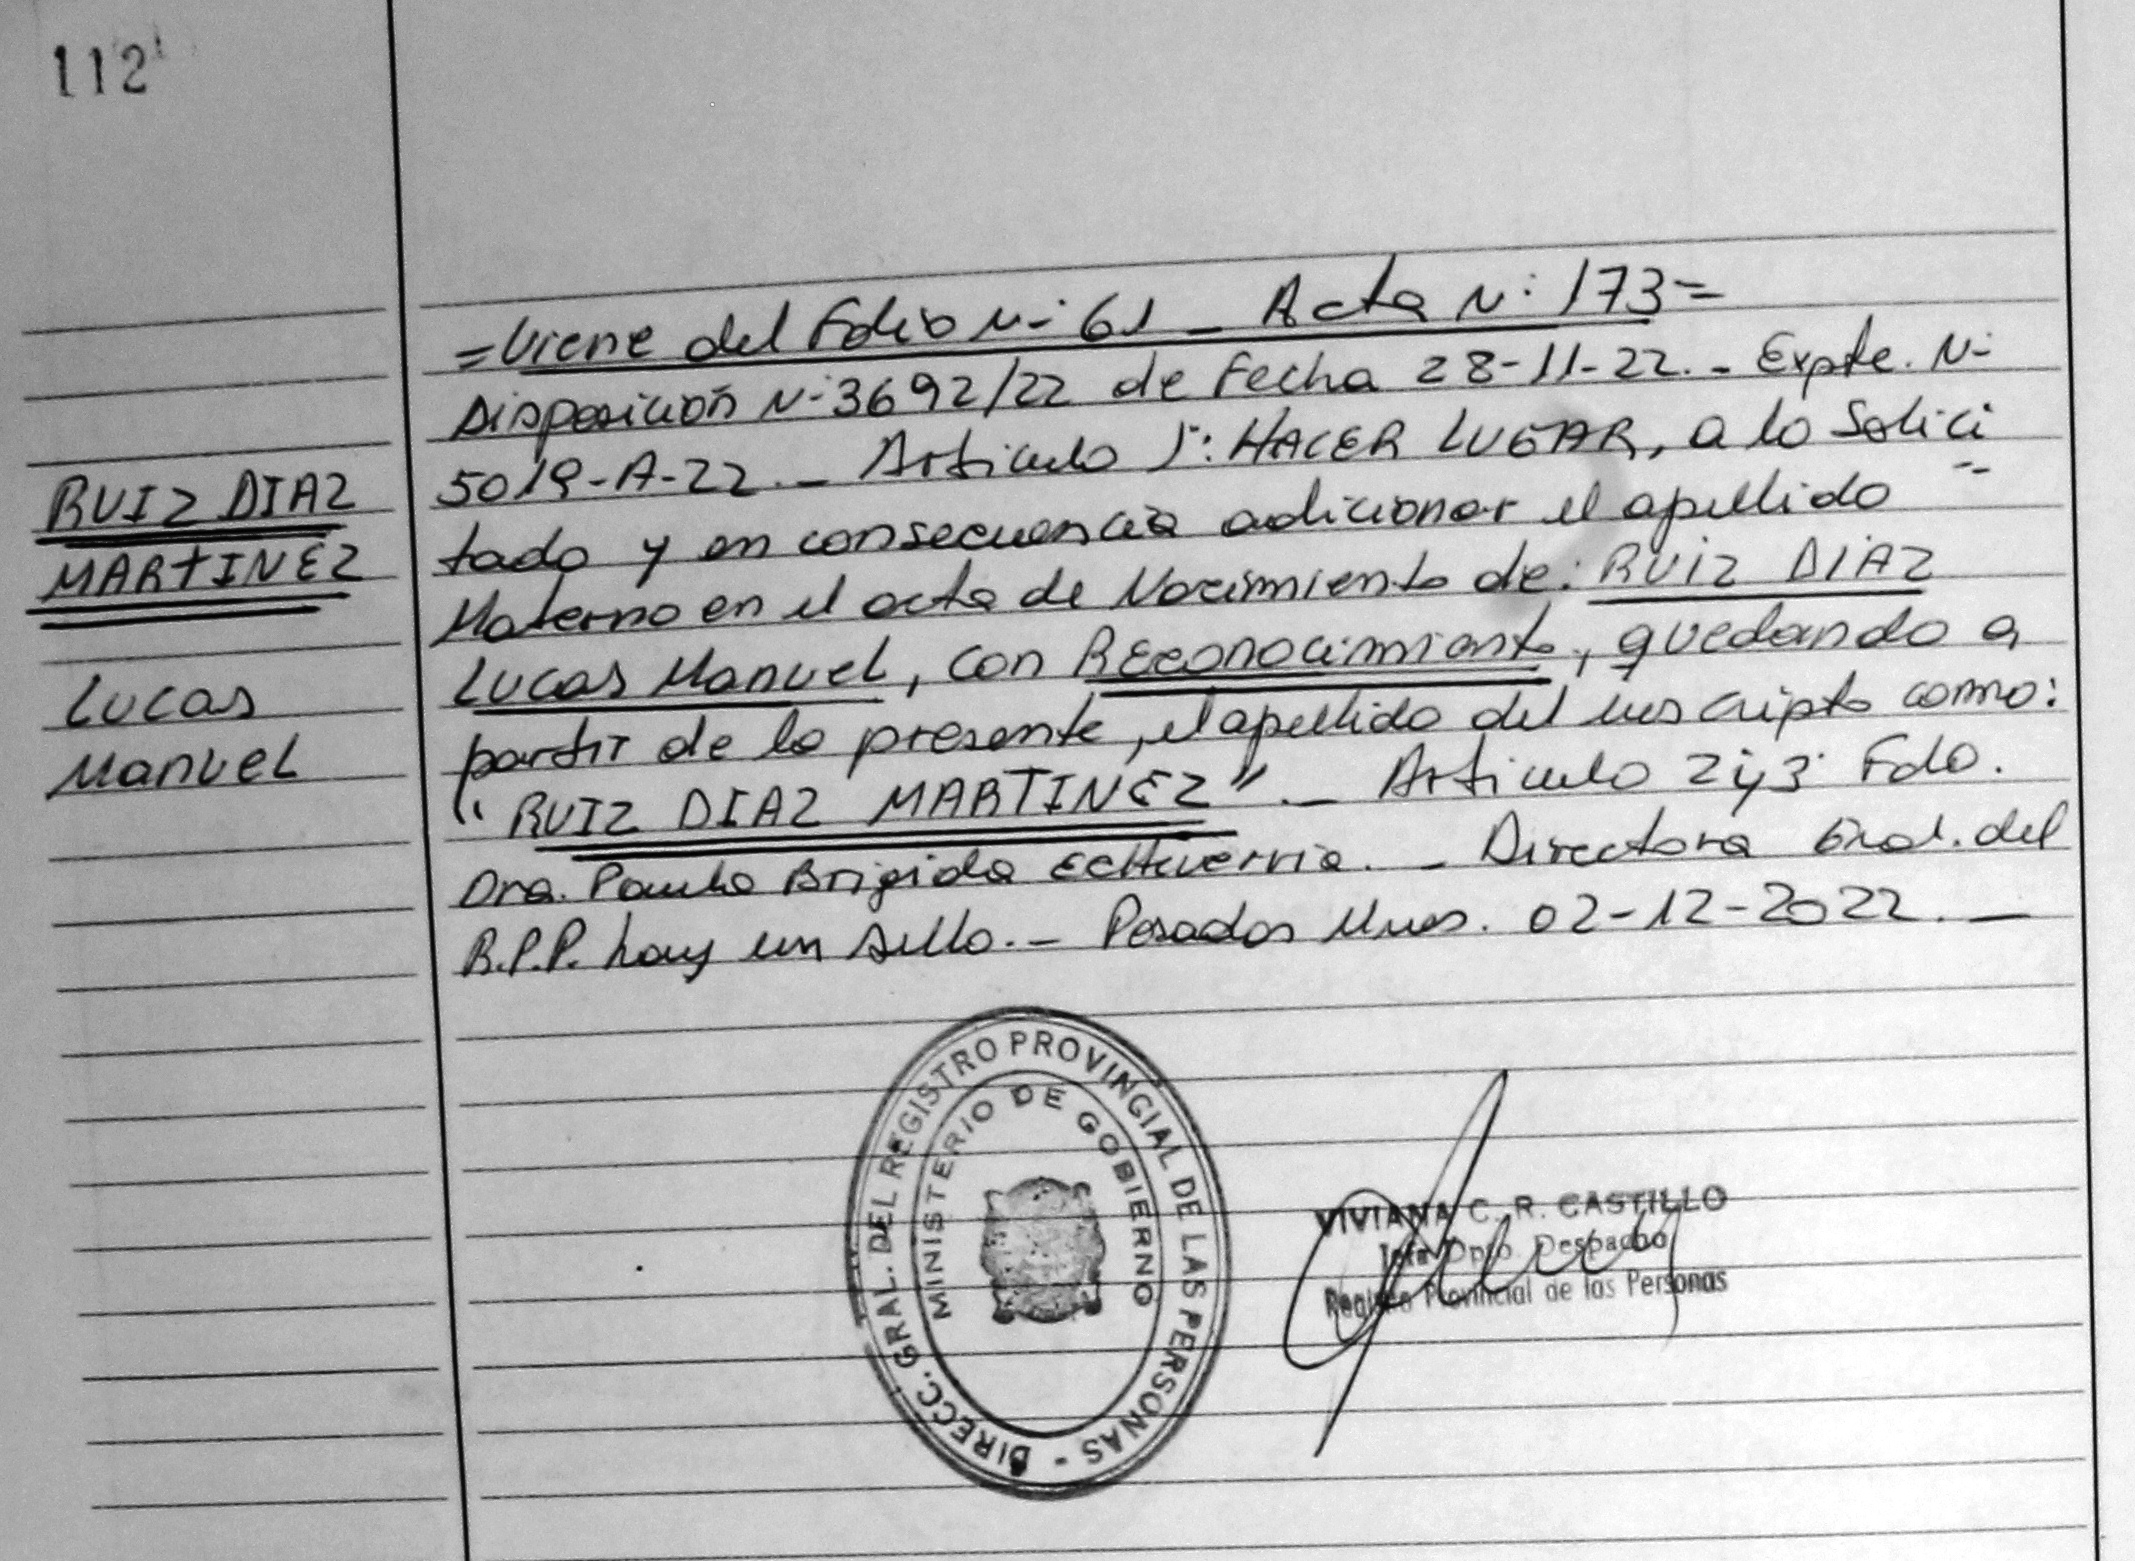 112
=Viene del Folio N° 61 _ Acta N° 173=
Disposición N° 3692/22 de Fecha 28-11-22._ Expte. N°
5019-A-22._ Articulo 1°: HACER LUGAR, a lo Solici
RUIZ DIAZ
tado y en consecuencia adicionar el apellido --
MARTINEZ
Materno en el acta de Nacimiento de: RUIZ DIAZ
Lucas Manuel, con Reconocimiento, quedando a
Lucas
partir de la presente, el apellido del inscripto como:
Manuel
"RUIZ DIAZ MARTINEZ"._ Articulo 2y3° Fdo.
Dra. Paula Brigida Echeverria._ Directora Gral. del
R.P.P. hay un sello._ Posadas Mnes. 02-12-2022._
DIRECC. GRAL. DEL REGISTRO PROVINCIAL DE LAS PERSONAS -
MINISTERIO DE GOBIERNO
VIVIANA C. R. CASTILLO
Jefa Dpto Despacho
Registro Provincial de las Personas